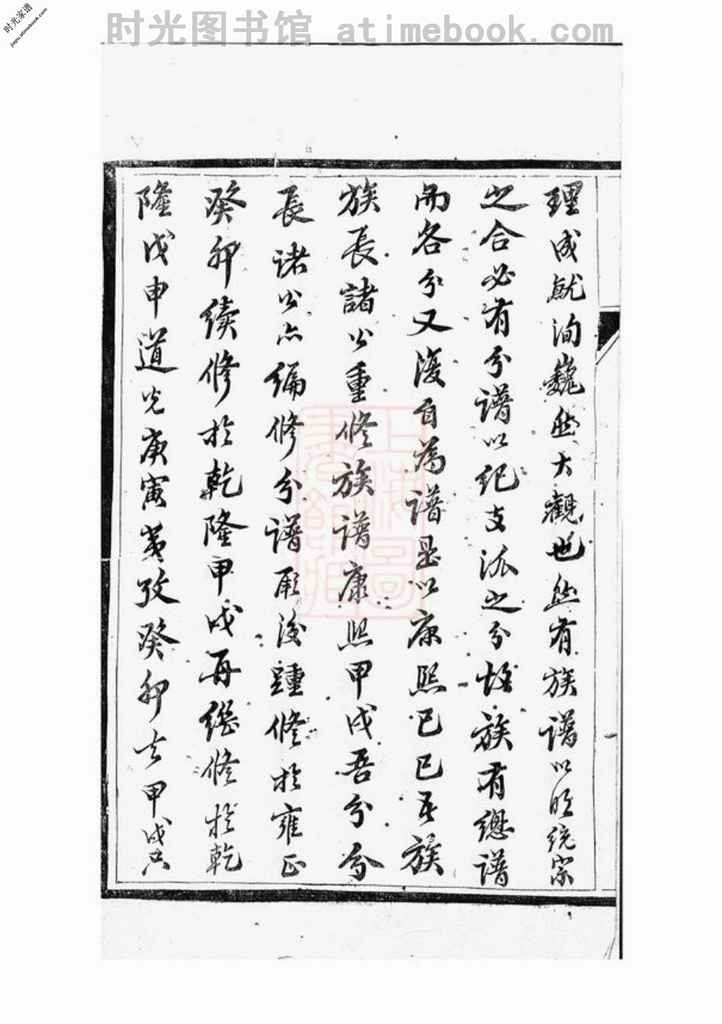 时光图书馆 atimebook.com
时光家谱
jiapu.atimebook.com
理成就洵巍然大觀也然有族譜以明統宗
之合必有分譜以紀支派之分惟族有總譜
而各分又復自為譜是以康熙己巳吾族
族長諸公重修族譜康熙甲戌吾分分
長諸公亦編修分譜厥後踵修於雍正
癸卯續修於乾隆甲戌再繼修於乾
隆戊申道光庚寅考癸卯去甲戌